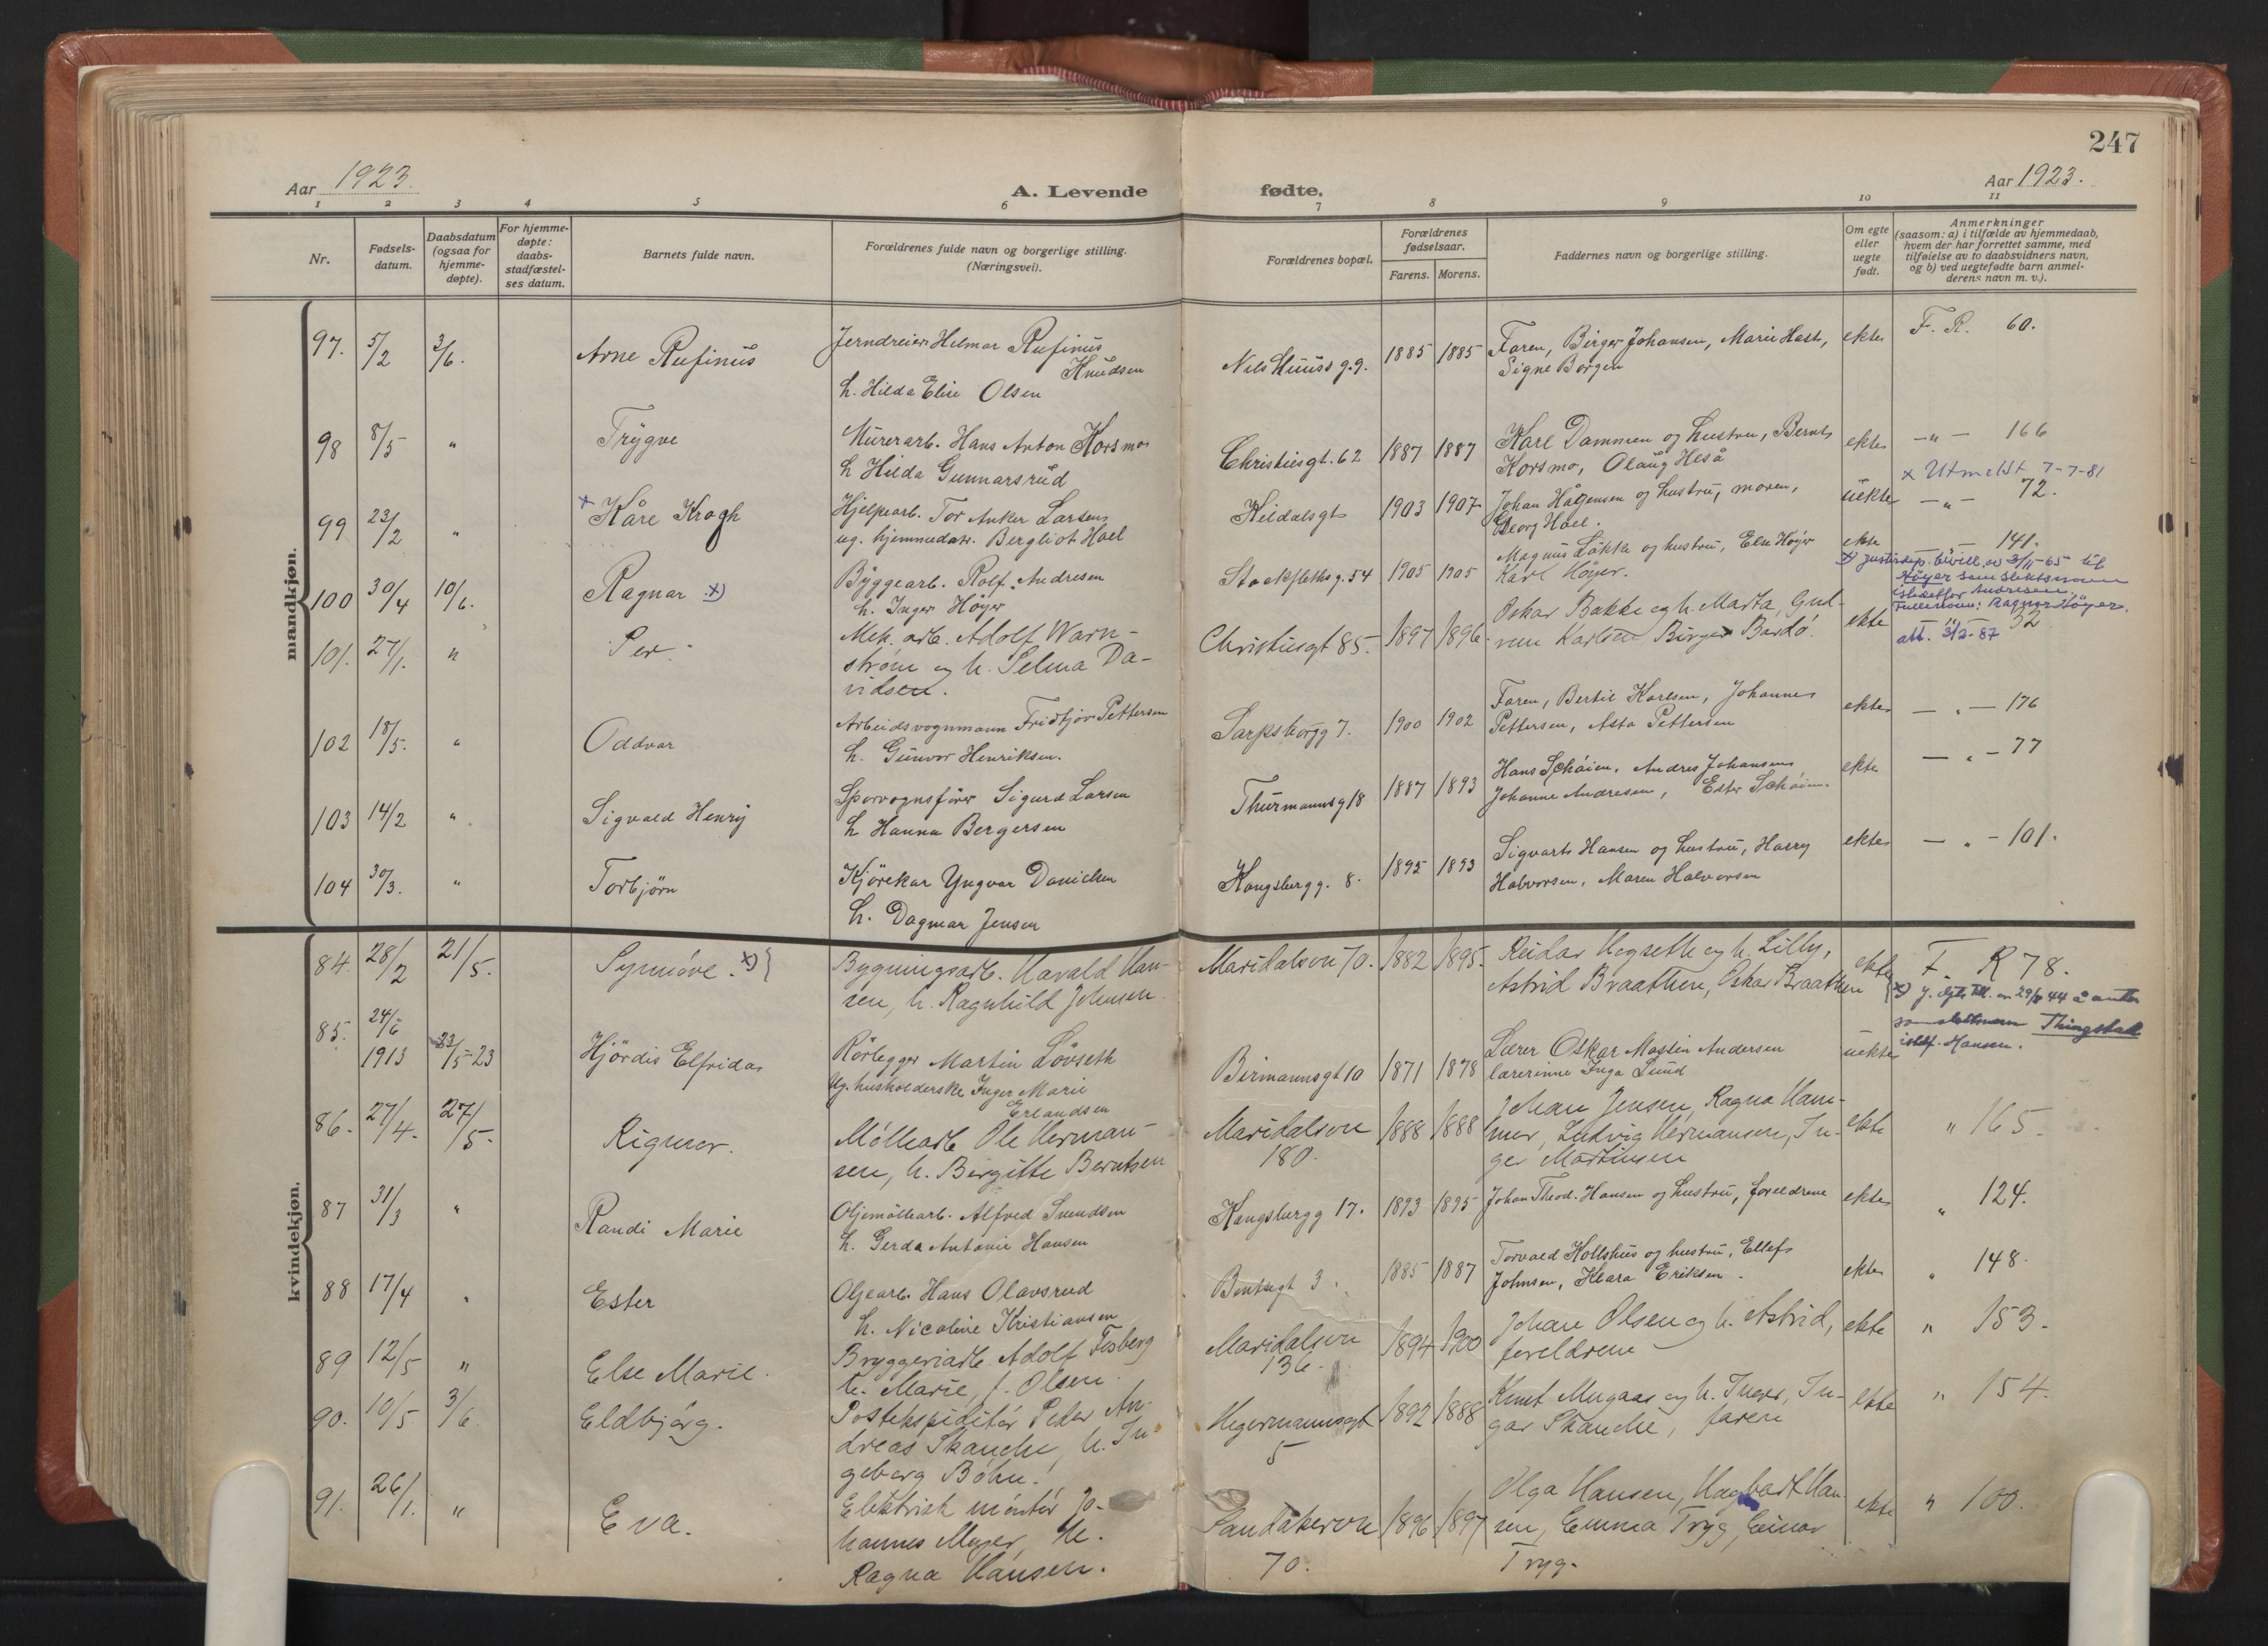 247
Aar 1923.
A. Levende fødte.
Aar 1923.
1 2 3 4 5 6 7 8 9 10 11
Nr.
Fødsels-
datum.
Daabsdatum
(ogsaa for
hjemme-
døpte).
For hjemme-
døpte:
daabs-
stadfæstel-
ses datum.
Barnets fulde navn.
Forældrenes fulde navn og borgerlige stilling.
(Næringsvei).
Forældrenes bopæl.
Forældrenes
fødselsaar.
Farens. Morens.
Faddernes navn og borgerlige stilling.
Om egte
eller
uegte
født.
Anmerkninger
(saasom: a) i tilfælde av hjemmedaab,
hvem der har forrettet samme, med
tilføielse av to daabsvidners navn,
og b) ved uegtefødte barn anmel-
derens navn m. v.).
mandkjøn.
97. 5/2 3/6. Arne Rufinus
Jerndreier Helmar Rufinus
Knudsen
h. Hilda Elise Olsen
Nils Huus g. 9. 1885 1885
Faren, Birger Johansen, Marie Hast,
Signe Borgen
ekte F. R. 60.
98 8/5 " Trygve
Murerarb. Hans Anton Korsmo
h Hilda Gunnarsrud
Christiesgt. 62 1887 1887
Karl Dammen og hustru, Bernt
Korsmo, Olaug Heså
ekte -"- 166
x Utmeldt 7-7-81
99 23/2 " x Kåre Krogh
Hjelpearb. Tor Anker Larsen
ug. hjemmedatr. Bergliot Hoel
Kildalsgt 1903 1907
Johan Hågensen og hustru, moren,
Georg Hoel.
uekte -"- 72.
100 30/4 10/6. Ragnar x)
Byggearb. Rolf Andresen
h. Inger Höyer
Stockfleths g. 54 1905 1905
Magnus Løkke og hustru, Else Höyer
Karl Höyer.
ekte -"- 141.
x) Justisdep. bevill. av 3/11-65 til
Höyer som slektsnavn
istedetfor Andresen.
Fulle navn: Ragnar Höyer.
att. 3/2-87
101. 27/1. " Per
Mek. arb. Adolf Warn-
strøm og h. Selma Da-
vidsen.
Christiesgt 85. 1897 1896.
Oskar Bakke og h. Marta, Gud-
run Karlsen Birger Bardó.
ekte " 32
102 18/5. " Oddvar
Arbeidsvognmann Fridtjov Pettersen
h. Gunvor Henriksen.
Sarpsborgg 7. 1900 1902
Faren, Bertil Karlsen, Johannes
Pettersen, Asta Pettersen
ekte -"- 176
103 14/2 " Sigvald Henry
Sporvognsfører Sigurd Larsen
h Hanna Bergersen
Thurmannsg 18 1887 1893
Hans Schöien, Andres Johansen
Johanne Andresen, Ester Schöien.
ekte -"- 77
104 30/3. " Torbjörn
Kjörekar Yngvar Danielsen
h. Dagmar Jensen
Kongsbergg. 8. 1895 1893
Sigvart Hansen og hustru, Harry
Halvorsen, Maren Halvorsen
ekte -"- 101.
kvindekjøn.
84. 28/2 21/5. Synnöve. x)
Bygningsarb. Harald Han-
sen, h. Ragnhild Johnsen
Maridalsvn 70. 1882 1895.
Reidar Hegseth og h. Lilly,
Astrid Braathen, Oskar Braathen
ekte F. R 78.
x) 29/8 44 å anta
som slektsnavn Thingstad
istedf. Hansen.
85. 24/6 1913 23/5-23 Hjördis Elfrida
Rørlegger Martin Lövseth
Ug. husholderske Inger Marie
Erlandsen
Birmannsgt 10 1871 1878
Lærer Oskar Martin Andersen
lærerinne Inga Lund
uekte
86. 27/4. 27/5. Rigmor.
Møllearb Ole Herman-
sen, h. Bergitte Berntsen
Maridalsvn
180. 1888 1888
Johan Jensen, Ragna Ham-
mer, Ludvig Hermansen, In-
ger Martinsen
ekte " 165.
87 31/3 " Randi Marie
Oljemöllearb. Alfred Svendsen
h. Gerda Antonie Hansen
Kongsbergg 17. 1893 1895
Johan Theod. Hansen og hustru, foreldrene
ekte " 124.
88 17/4 " Ester
Oljearb. Hans Olavsrud
h. Nicoline Kristiansen
Bentsegt 3. 1885 1887
Torvald Kollshus og hustru, Ellef
Johnsen, Klara Eriksen.
ekte " 148.
89 12/5 " Else Marie.
Bryggeriarb. Adolf Fosberg
h. Marie, f. Olsen.
Maridalsvn
136. 1894 1900
Johan Olsen og h. Astrid,
foreldrene
ekte " 153.
90. 10/5 3/6. Eldbjörg.
Postekspeditör Peder An-
dreas Skanche, h. In-
geborg Böhn.
Hegermannsgt
5 1892 1888
Knut Mugaas og h. Inger, In-
gar Skanche, faren
ekte " 154.
91. 26/1. " Eva.
Elektrisk montör Jo-
hannes Meyer, h.
Ragna Hansen.
Sandakervn
70. 1896 1897
Olga Hansen, Hagbart Han-
sen, Emma Tryg, Einar
Tryg.
ekte " 100.